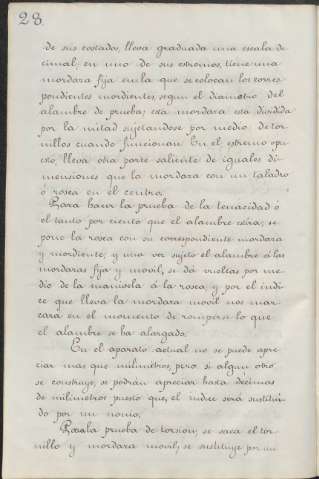 28.
de sus costados, lleva graduada una escala de
cimal; en uno de sus estremos, tiene una
mordara fija en la que se colocan los corres
pondientes mordientes, segun el diametro del
alambre de prueba; esta mordara esta dividida
por la mitad sujetandose por medio de tor
nillos cuando funcionan. En el estremo opu
esto, lleva otra parte saliente de iguales di
menciones que la mordara con un taladro
ó rosca en el centro.
Para hacer la prueba de la tenacidad ó
el tanto por ciento que el alambre estira; se
pone la rosca con su correspondiente mordara
y mordiente; y una ver sujeto el alambre á las
mordaras fija y movil, se dá vueltas por me
dio de la manivela á la rosca, y por el indi
ce que lleva la mordara movil nos mar
cará en el momento de romperse lo que
el alambre se ha alargado.
En el aparato actual no se puede apre
ciar mas que milimetros, pero si algun otro
se construye, se podran apreciar hasta decimas
de milimetros puesto que, el indice será sustitui
do por un nonio.
Para la prueba de torsion, se saca el tor
nillo y mordara movil, se sustituye por un